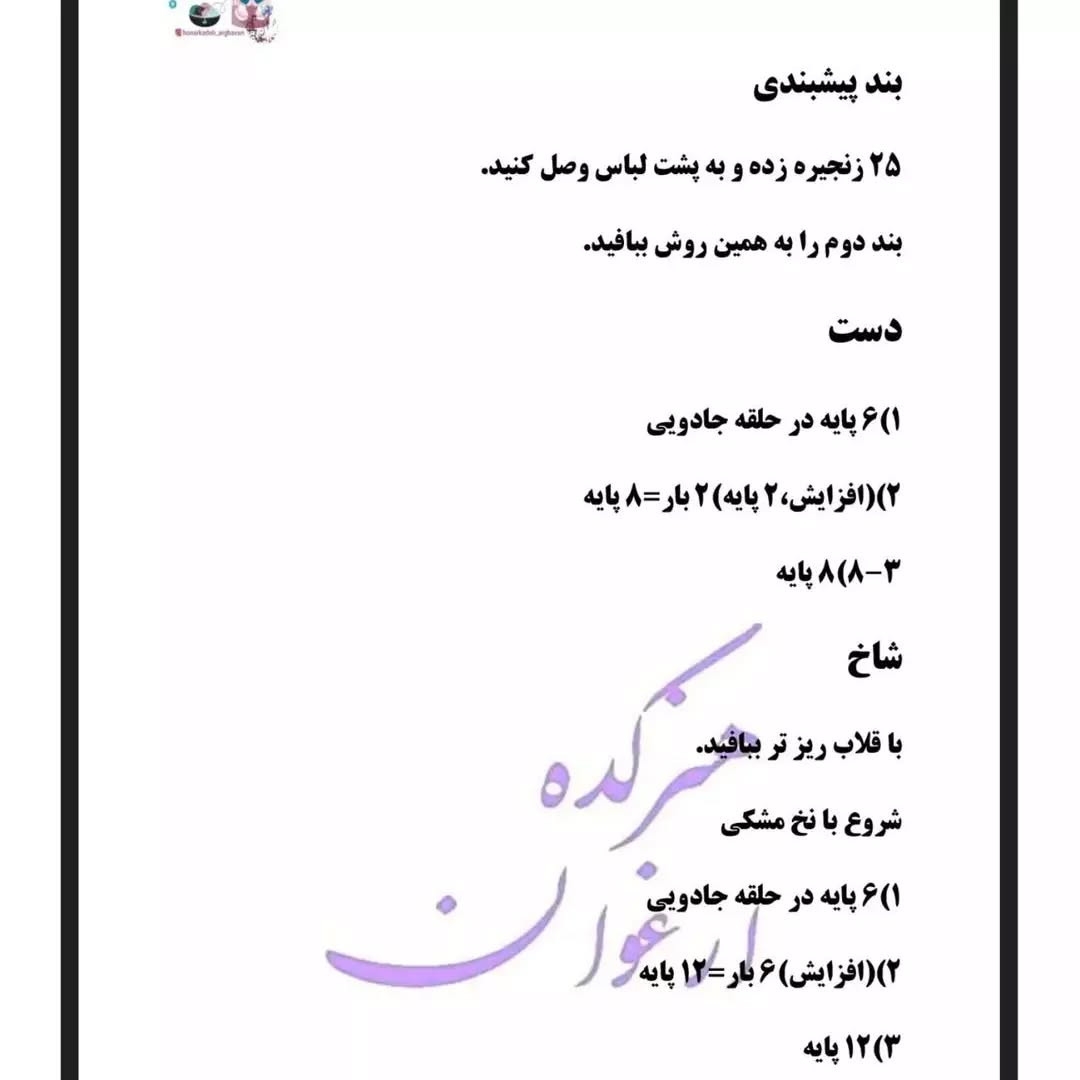 honarkadeh_arghavan
بند پیشبندی
۲۵ زنجیره زده و به پشت لباس وصل کنید.
بند دوم را به همین روش ببافید.
دست
۱)۶ پایه در حلقه جادویی
۲)(افزایش،۲ پایه)۲ بار=۸ پایه
۳-۸)۸ پایه
شاخ
با قلاب ریز تر ببافید.
شروع با نخ مشکی
۱)۶ پایه در حلقه جادویی
۲)(افزایش)۶ بار=۱۲ پایه
۳)۱۲ پایه
هنرکده
ارغوان